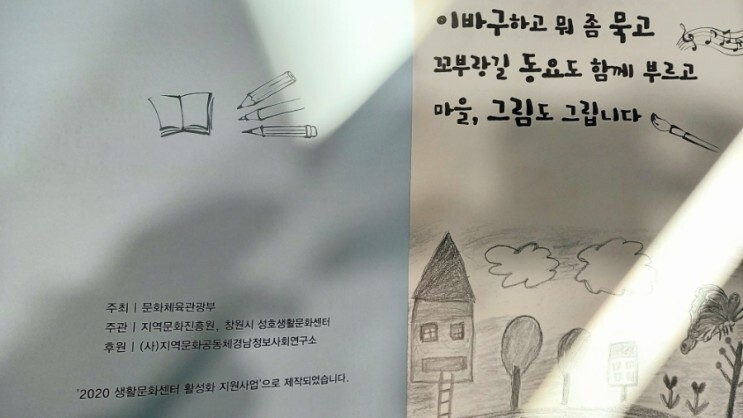 주최 | 문화체육관광부
주관 | 지역문화진흥원, 창원시 성호생활문화센터
후원 | (사)지역문화공동체경남정보사회연구소
'2020 생활문화센터 활성화 지원사업'으로 제작되었습니다.
이바구하고 뭐 좀 묵고
꼬부랑길 동요도 함께 부르고
마을, 그림도 그립니다